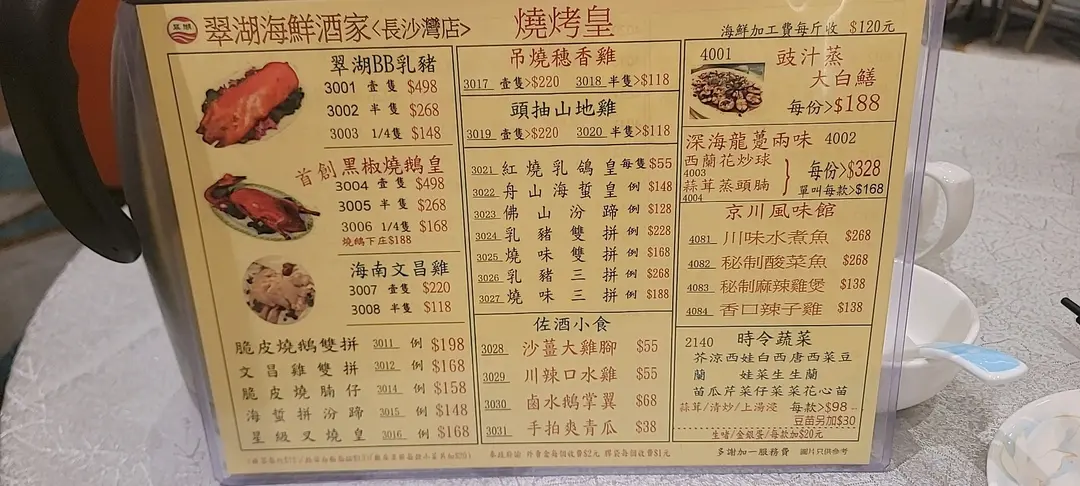 翠湖
翠湖海鮮酒家<長沙灣店>
燒烤皇
海鮮加工費每斤收 $120元
翠湖BB乳豬
3001 壹隻 $498
3002 半隻 $268
3003 1/4隻 $148
首創黑椒燒鵝皇
3004 壹隻 $498
3005 半隻 $268
3006 1/4隻 $168
燒鵝下庄$188
海南文昌雞
3007 壹隻 $220
3008 半隻 $118
脆皮燒鵝雙拼 3011 例 $198
文昌雞雙拼 3012 例 $168
脆皮燒腩仔 3014 例 $158
海蜇拼汾蹄 3015 例 $148
星級叉燒皇 3016 例 $168
吊燒穗香雞
3017 壹隻>$220 3018 半隻>$118
頭抽山地雞
3019 壹隻>$220 3020 半隻>$118
3021 紅燒乳鴿皇 每隻 $55
3022 舟山海蜇皇 例 $148
3023 佛山汾蹄 例 $128
3024 乳豬雙拼 例 $228
3025 燒味雙拼 例 $168
3026 乳豬三拼 例 $268
3027 燒味三拼 例 $188
佐酒小食
3028 沙薑大雞腳 $55
3029 川辣口水雞 $55
3030 鹵水鵝掌翼 $68
3031 手拍爽青瓜 $38
4001 豉汁蒸
大白鱔
每份>$188
深海龍躉兩味 4002
西蘭花炒球
4003
蒜茸蒸頭腩
4004
每份>$328
單叫每款>$168
京川風味館
4081 川味水煮魚 $268
4082 秘制酸菜魚 $268
4083 秘制麻辣雞煲 $138
4084 香口辣子雞 $138
2140 時令蔬菜
芥涼西娃白西唐西菜豆
蘭 娃菜生生蘭
苗瓜芹菜仔菜菜花心苗
蒜茸/清炒/上湯浸 每款>$98
豆苗另加$30
生啫/金銀蛋/每款加$20元
外賣盒每個收費$2元 膠袋每個收費$1元
多謝加一服務費 圖片只供參考